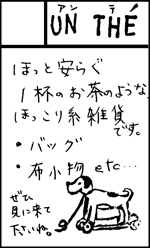 アン テ
UN THÉ
ほっと安らぐ
1杯のお茶のような、
ほっこり系雑貨
です。
・バッグ
・布小物 etc…
ぜひ
見に来て
下さいね。